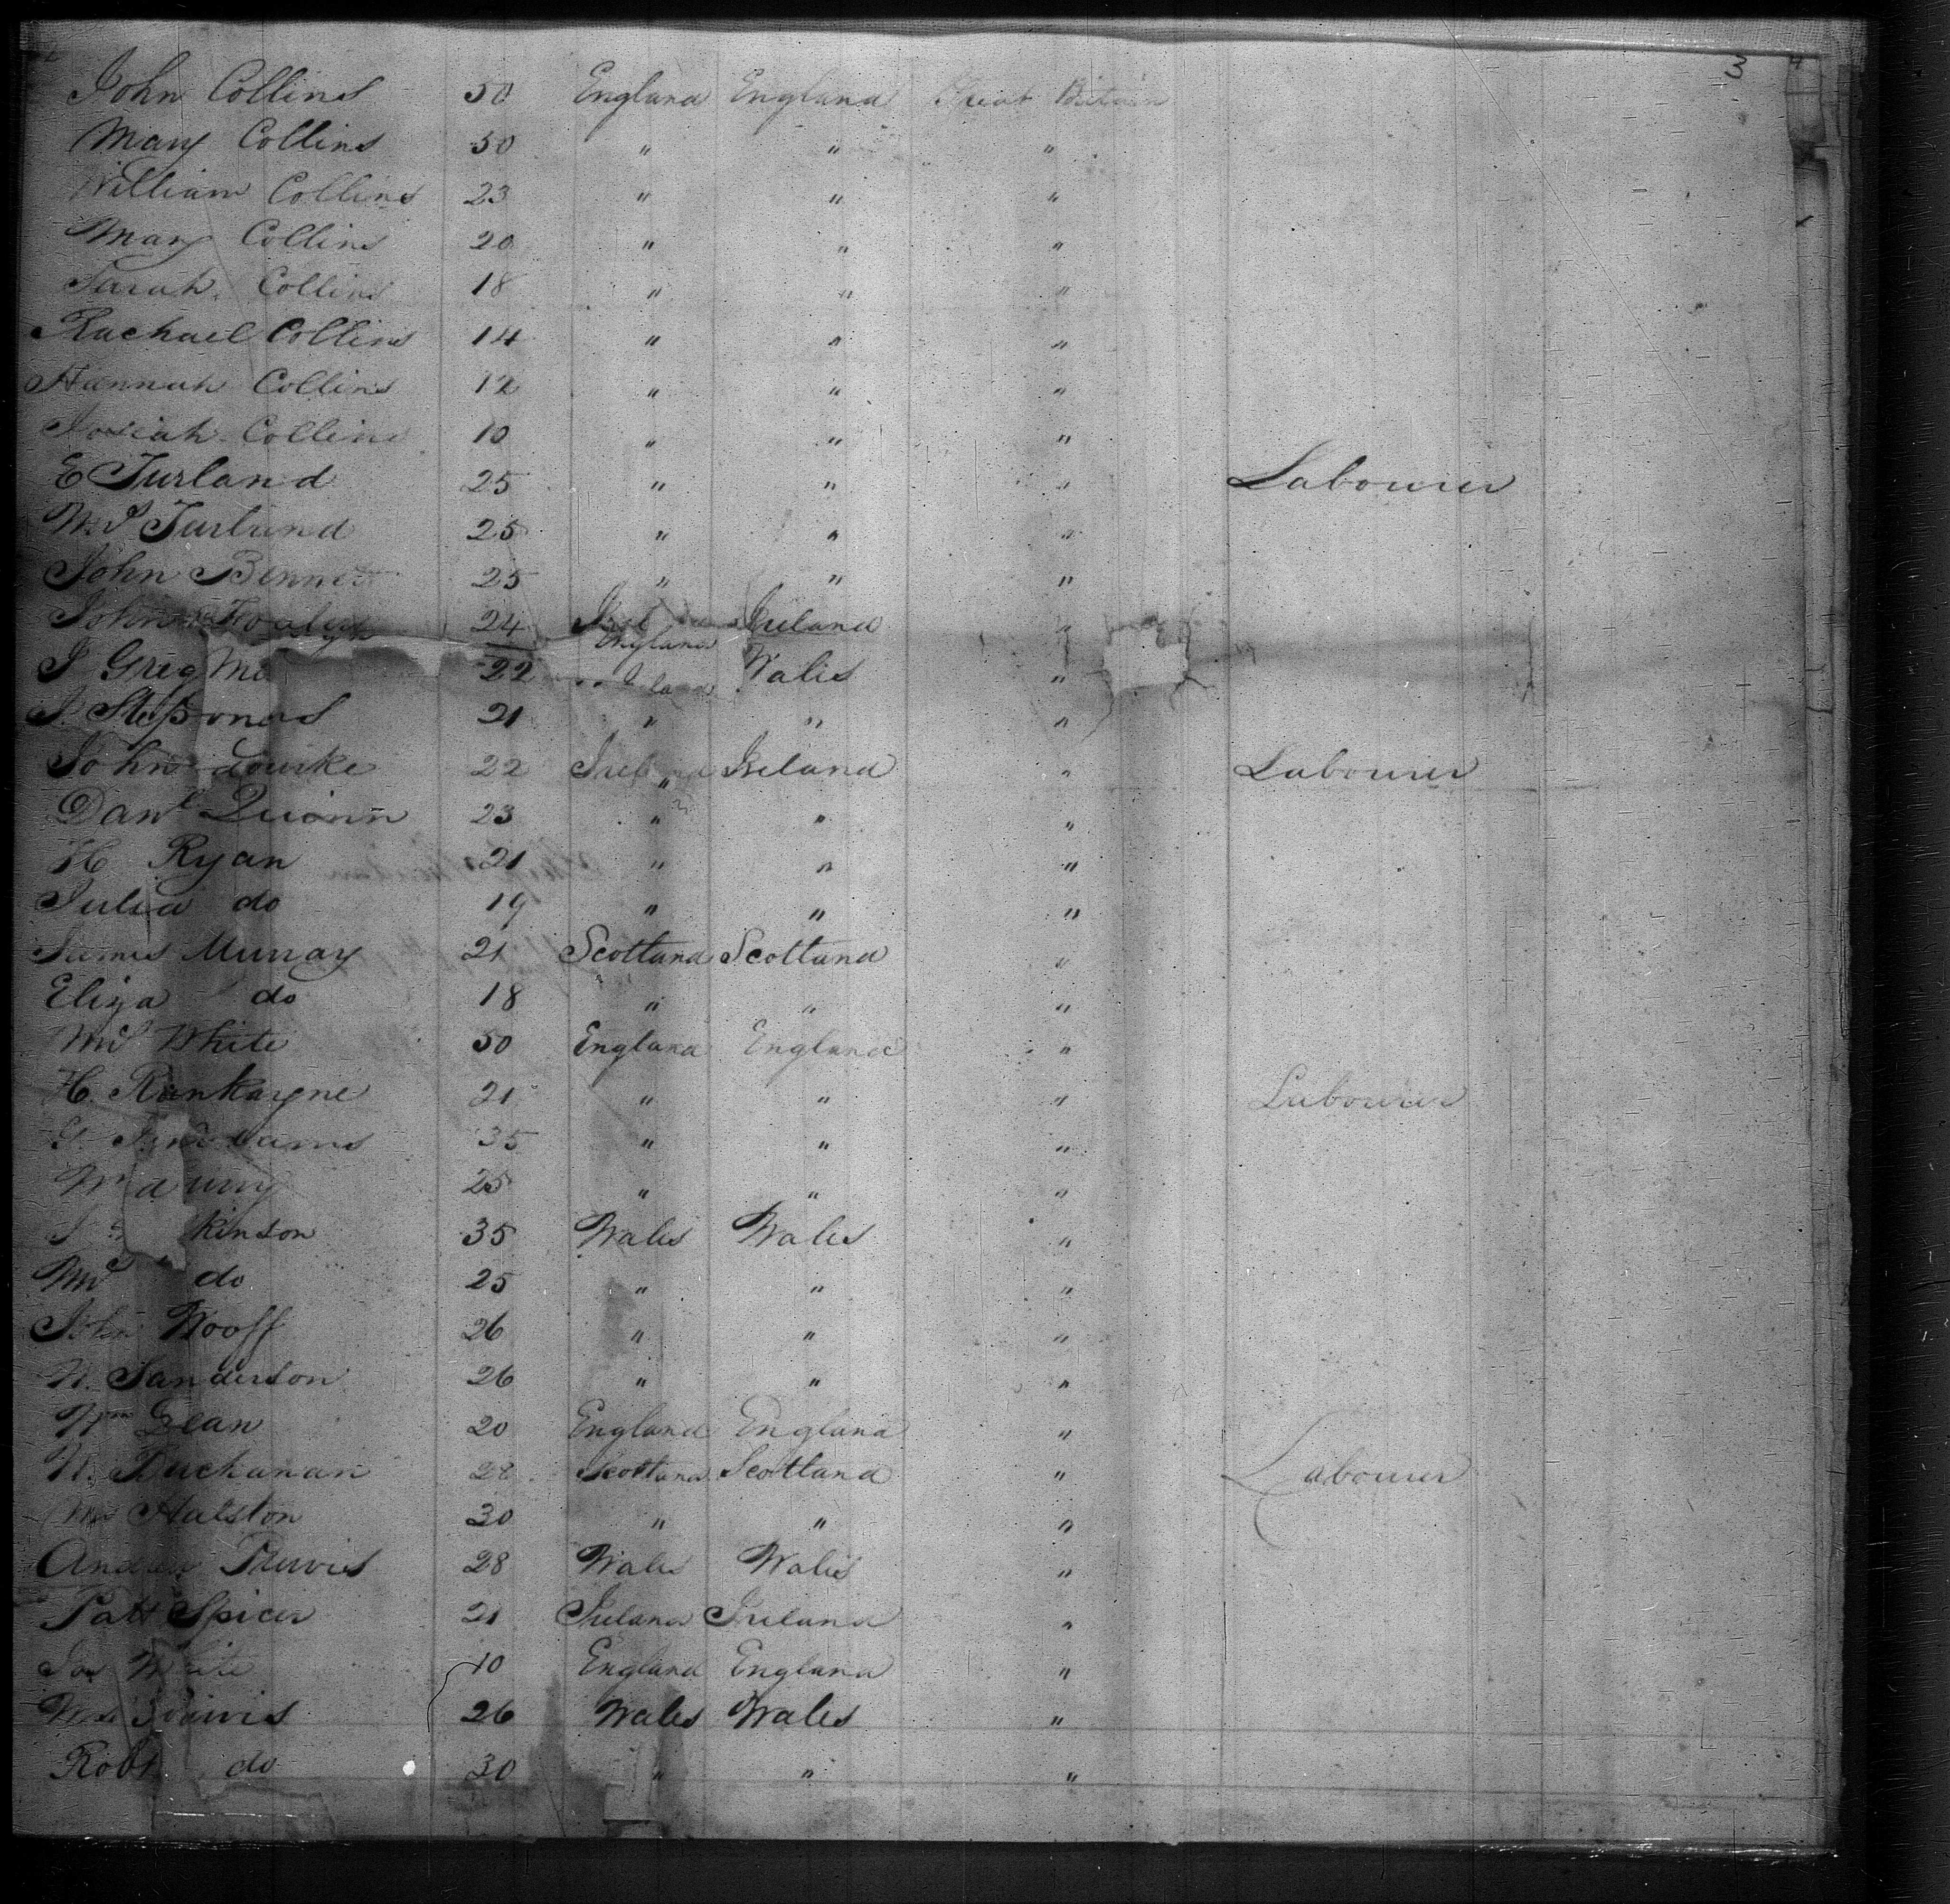 3
John Collins 50 England England Great Britain
Mary Collins 50 " " "
William Collins 23 " " "
Mary Collins 20 " " "
Sarah Collins 18 " " "
Rachael Collins 14 " " "
Hannah Collins 12 " " "
Josiah Collins 10 " " "
E Turland 25 " " " Labourer
Mrs Turland 25 " " "
John Bennet 25 " " "
John 24 Ireland "
England
J Greg 22 Wales "
J. 21 " " "
John Lourke 22 Ireland Ireland " Labourer
Danl Quinn 23 " " "
H Ryan 21 " " "
Julia do 19 " " "
James Murray 21 Scotland Scotland "
Eliza do 18 " " "
Mrs White 50 England England "
H. Rankayne 21 " " " Labourer
35 " " "
25 " " "
kinson 35 Wales Wales "
Mrs do 25 " " "
John Wooff 26 " " "
W. Sanderson 26 " " "
Wm Dean 20 England England "
W. Buchanan 28 Scotland Scotland " Labourer
Mrs Hulston 30 " " "
Andrew 28 Wales Wales "
Patt Spicer 21 Ireland Ireland "
Jas White 10 England England "
Davis 26 Wales Wales "
Robt do 30 " " "